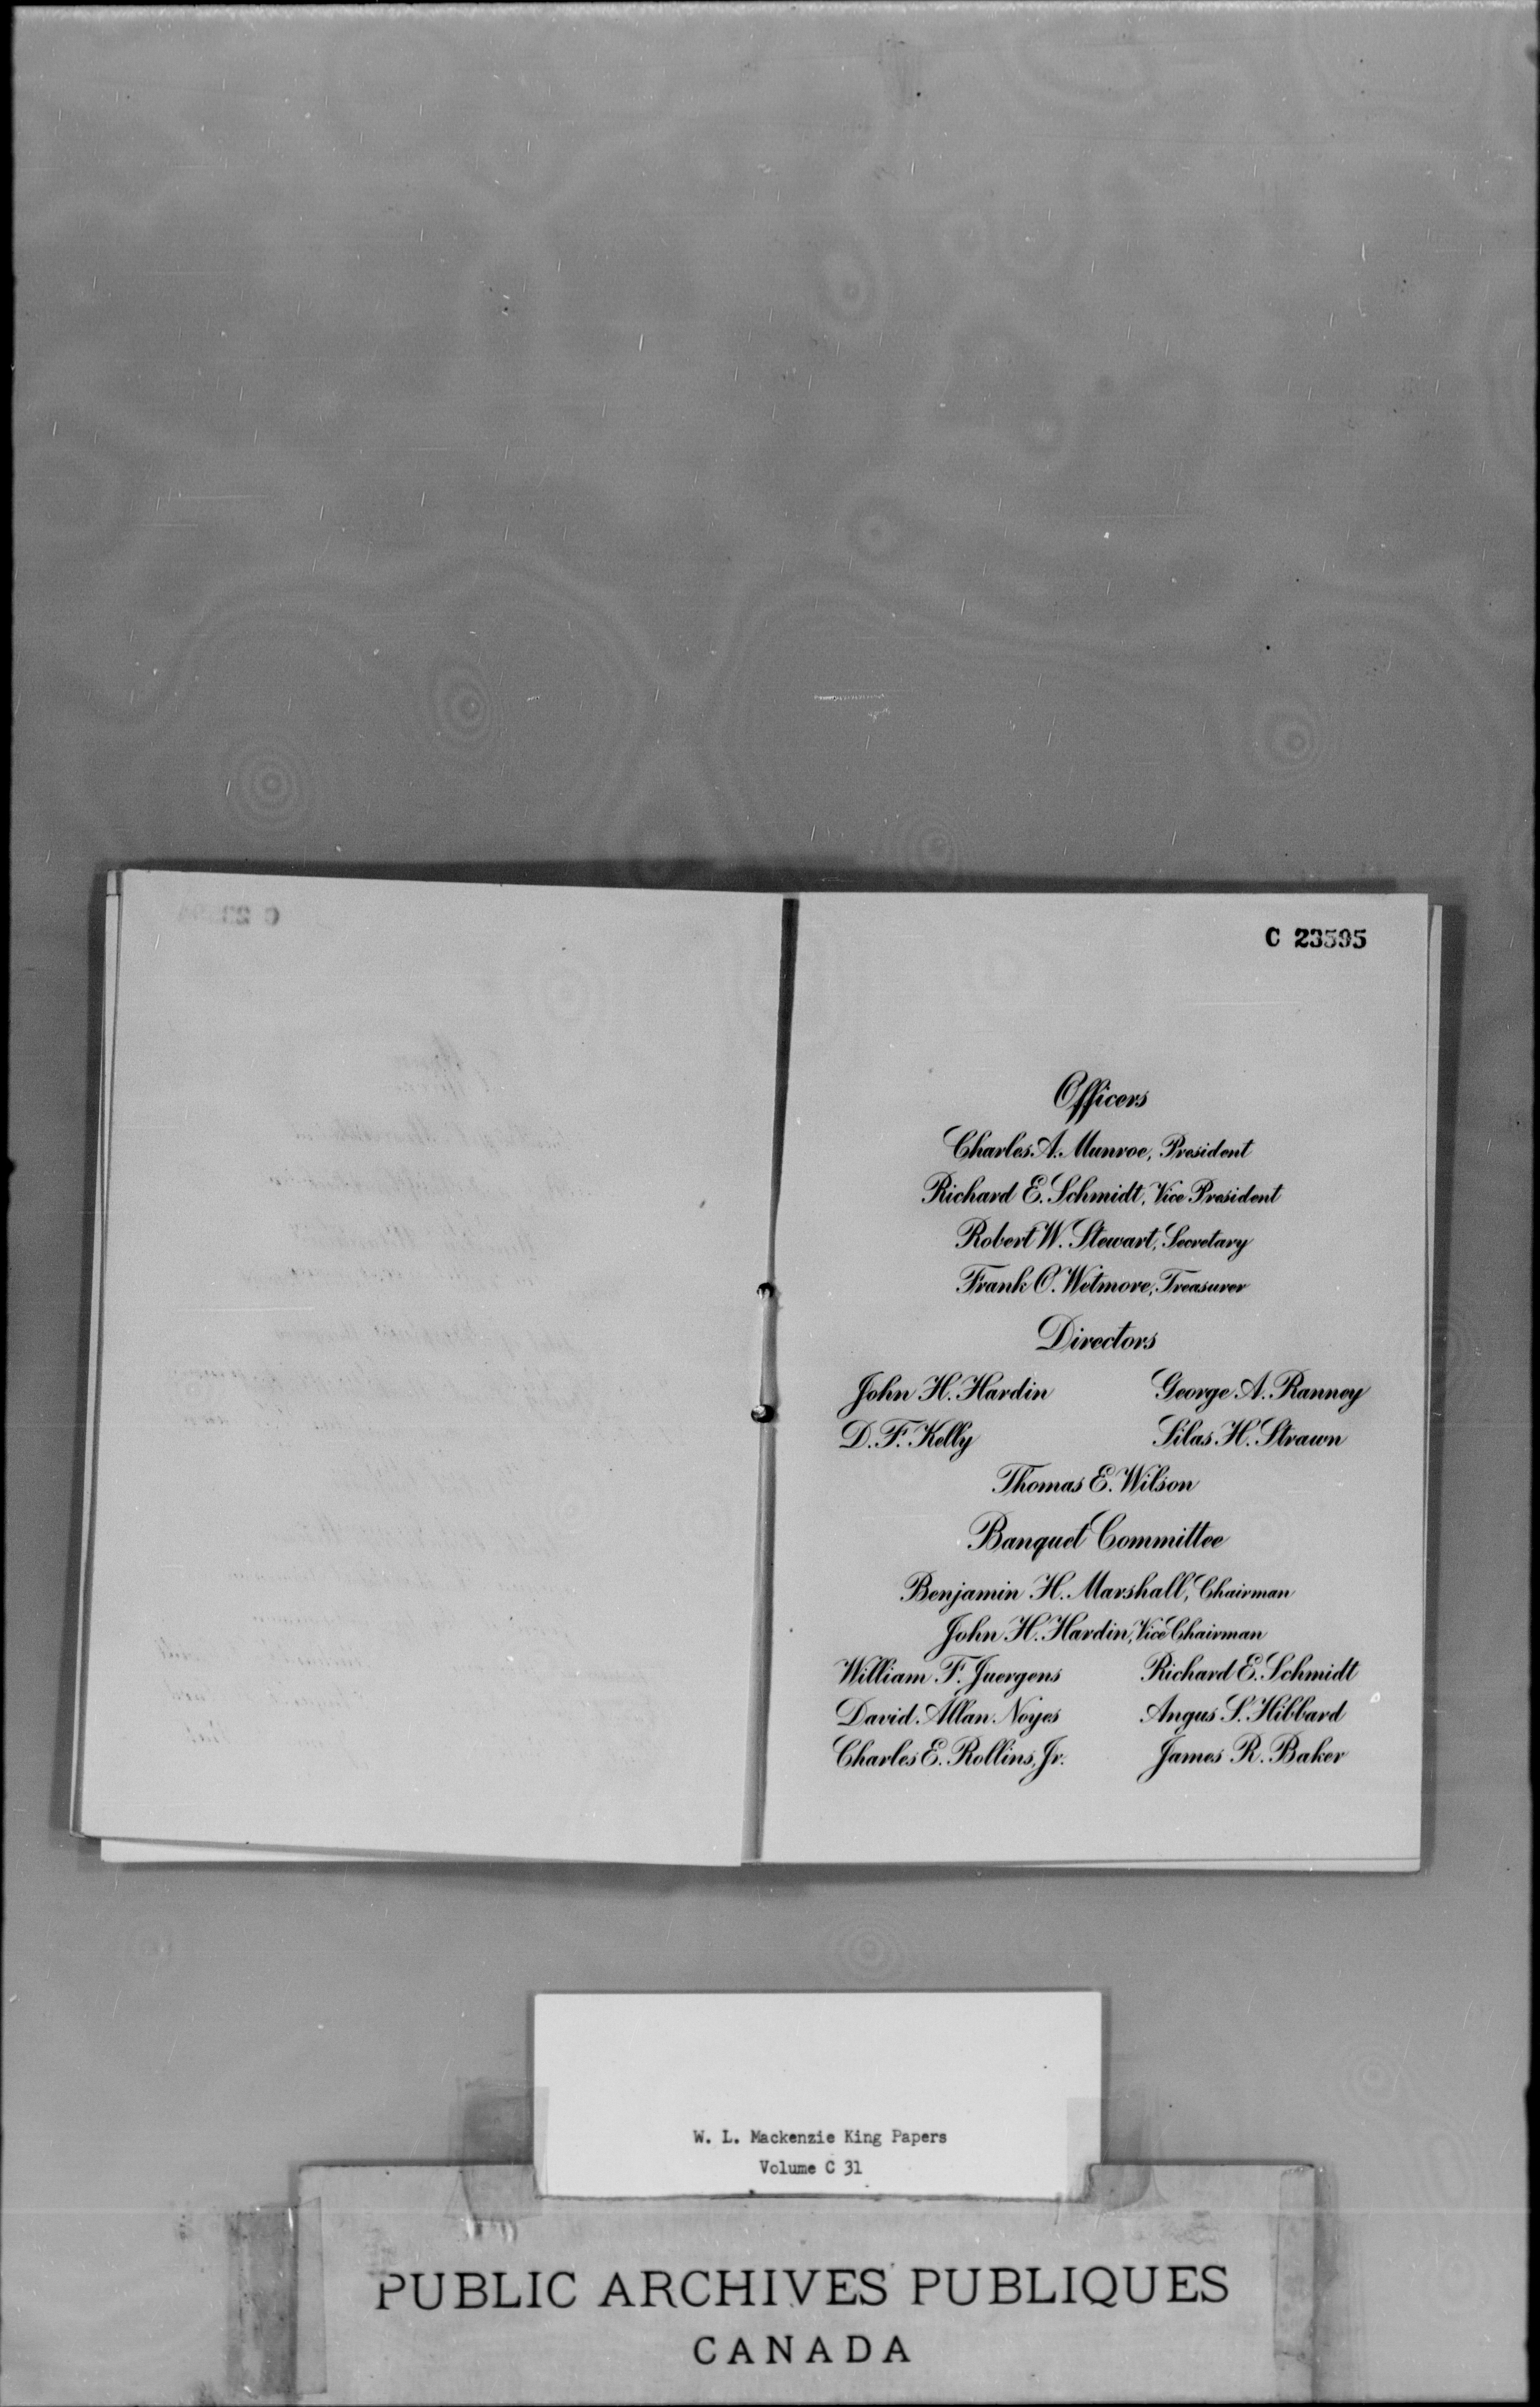 C 23595
Officers
Charles A. Munroe, President
Richard E. Schmidt, Vice President
Robert W. Stewart, Secretary
Frank O. Wetmore, Treasurer
Directors
John H. Hardin George A. Ranney
D. F. Kelly Silas H. Strawn
Thomas E. Wilson
Banquet Committee
Benjamin H. Marshall, Chairman
John H. Hardin, Vice Chairman
William F. Juergens Richard E. Schmidt
David Allan Noyes Angus S. Hibbard
Charles E. Rollins, Jr. James R. Baker
W. L. Mackenzie King Papers
Volume C 31
PUBLIC ARCHIVES PUBLIQUES
CANADA